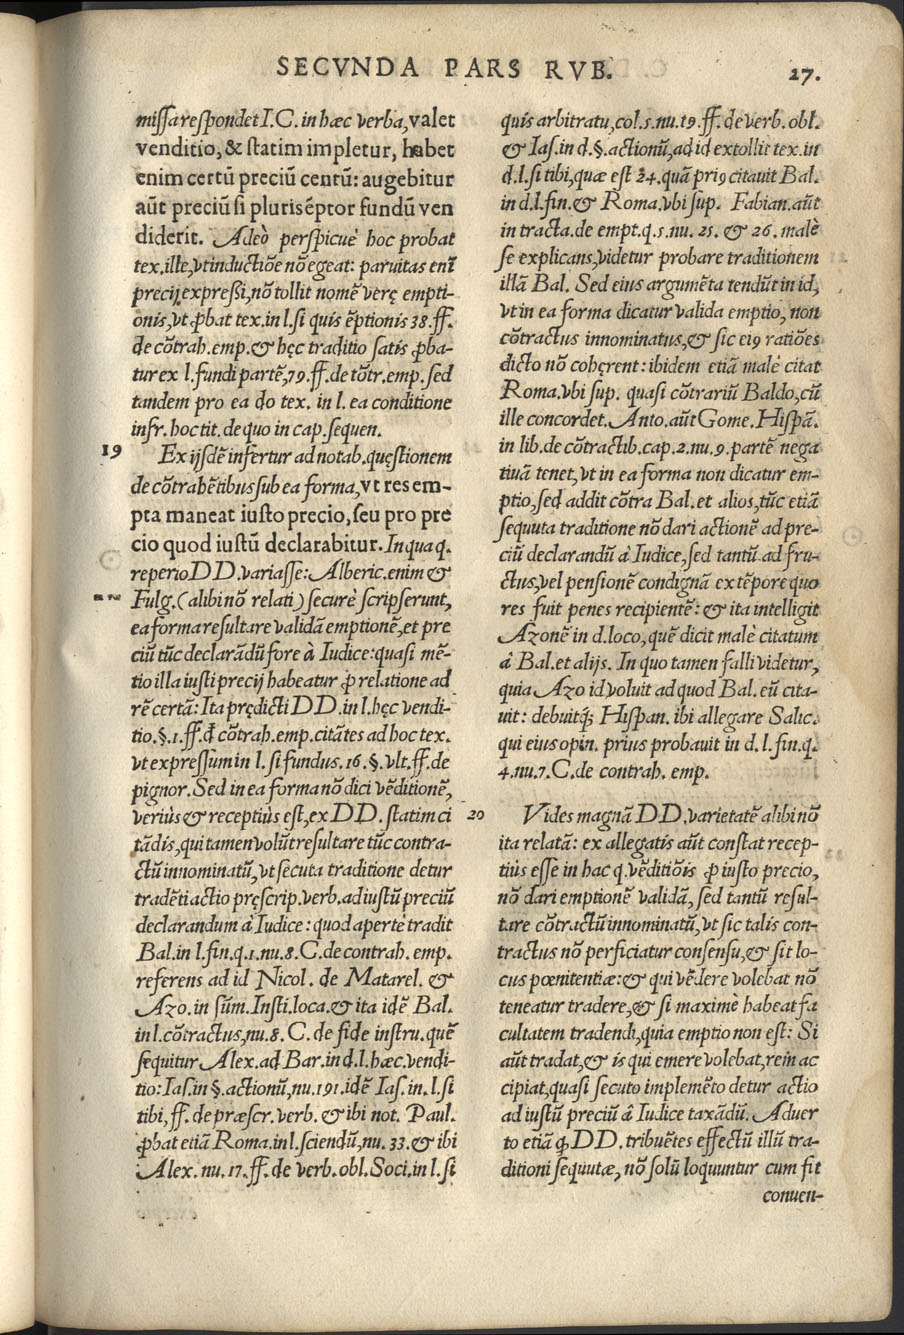 SECVNDA PARS RVB.
27.
missa respondet I.C. in hæc verba, valet
venditio, & statim impletur, habet
enim certũ preciũ centũ: augebitur
aũt preciũ si pluris ẽptor fundũ ven
diderit. Adeò perspicuè hoc probat
tex. ille, vt inductiõe nõ egeat: paruitas enĩ
precij expressi, nõ tollit nomẽ verę empti-
onis, vt ꝓbat tex. in l. si quis ẽptionis 38. ff.
de cõtrah. emp. & hęc traditio satis ꝓba-
tur ex l. fundi partẽ, 79. ff. de cõtr. emp. sed
tandem pro ea do tex. in l. ea conditione
infr. hoc tit. de quo in cap. sequen.
19
Ex ijsdẽ infertur ad notab. quęstionem
de cõtrahẽtibus sub ea forma, vt res em-
pta maneat iusto precio, seu pro pre
cio quod iustũ declarabitur. In qua q.
reperio DD. variasse: Alberic. enim &
Fulg. (alibi nõ relati) securè scripserunt,
ea forma resultare validã emptionẽ, et pre
ciũ tũc declarãdũ fore à Iudice: quasi mẽ-
tio illa iusti precij habeatur ꝓ relatione ad
rẽ certã: Ita prędicti DD. in l. hęc vendi-
tio. §. 1. ff. đ cõtrah. emp. citãtes ad hoc tex.
vt expressum in l. si fundus. 16. §. vlt. ff. de
pignor. Sed in ea forma nõ dici vẽditionẽ,
veriùs & receptiùs est, ex DD. statim ci
tãdis, qui tamen volũt resultare tũc contra-
ctũ innominatũ, vt secuta traditione detur
tradẽti actio pręscrip. verb. ad iustũ preciũ
declarandum à Iudice: quod apertè tradit
Bal. in l. fin. q. 1. nu. 8. C. de contrah. emp.
referens ad id Nicol. de Matarel. &
Azo. in sũm. Insti. loca. & ita idẽ Bal.
in l. cõtractus, nu. 8. C. de fide instru. quẽ
sequitur Alex. ad Bar. in d. l. hæc. vendi-
tio: Ias. in §. actionũ, nu. 191. idẽ Ias. in. l. si
tibi, ff. de præscr. verb. & ibi not. Paul.
ꝓbat etiã Roma. in l. sciendũ, nu. 33. & ibi
Alex. nu. 17. ff. de verb. obl. Soci. in l. si
quis arbitratu, col. 5. nu. 19. ff. de verb. obl.
& Ias. in d. §. actionũ, ad id extollit tex. in
d. l. si tibi, quæ est 24. quã priꝰ citauit Bal.
in d. l. fin. & Roma. vbi sup. Fabian. aũt
in tracta. de empt. q. 5. nu. 25. & 26. malè
se explicans, videtur probare traditionem
illã Bal. Sed eius argumẽta tendũt in id,
vt in ea forma dicatur valida emptio, non
cõtractus innominatus, & sic eiꝰ ratiões
dicto nõ cohęrent: ibidem etiã malè citat
Roma. vbi sup. quasi cõtrariũ Baldo, cũ
ille concordet. Anto. aũt Gome. Hispã.
in lib. de cõtractib. cap. 2. nu. 9. partẽ nega
tiuã tenet, vt in ea forma non dicatur em-
ptio, sed addit cõtra Bal. et alios, tũc etiã
sequuta traditione nõ dari actionẽ ad pre-
ciũ declarandũ à Iudice, sed tantũ ad fru-
ctus, vel pensionẽ condignã ex tẽpore quo
res fuit penes recipientẽ: & ita intelligit
Azonẽ in d. loco, quẽ dicit malè citatum
â Bal. et alijs. In quo tamen falli videtur,
quia Azo id voluit ad quod Bal. eũ cita-
uit: debuitq́; Hispan. ibi allegare Salic.
qui eius opin. prius probauit in d. l. fin. q.
4. nu. 7. C. de contrah. emp.
20
Vides magnã DD. varietatẽ alibi nõ
ita relatã: ex allegatis aũt constat recep-
tiùs esse in hac q. vẽditiõis ꝓ iusto precio,
nõ dari emptionẽ validã, sed tantũ resul-
tare cõtractũ innominatũ, vt sic talis con-
tractus nõ perficiatur consensu, & sit lo-
cus pœnitentiæ: & qui vẽdere volebat nõ
teneatur tradere, & si maximè habeat fa
cultatem tradendi, quia emptio non est: Si
aũt tradat, & is qui emere volebat, rem ac
cipiat, quasi secuto implemẽto detur actio
ad iustũ preciũ â Iudice taxãdũ. Aduer
to etiã ꝙ DD. tribuẽtes effectũ illũ tra-
ditioni sequutæ, nõ solũ loquuntur cum fit
conuen-